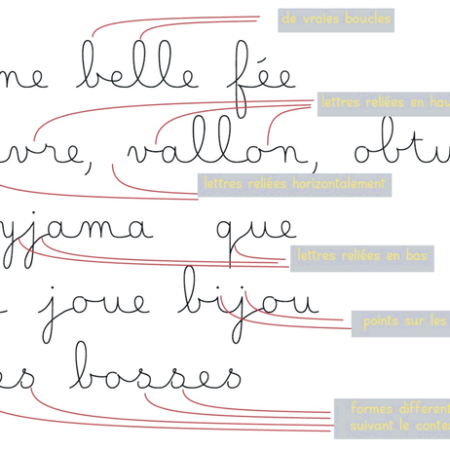 de vraies boucles
ne belle fée
lettres reliées en hau
vre, vallon, obtu
lettres reliées horizontalement
yjama que
lettres reliées en bas
joue bijou
points sur les
es bosses
formes différent
suivant le contex